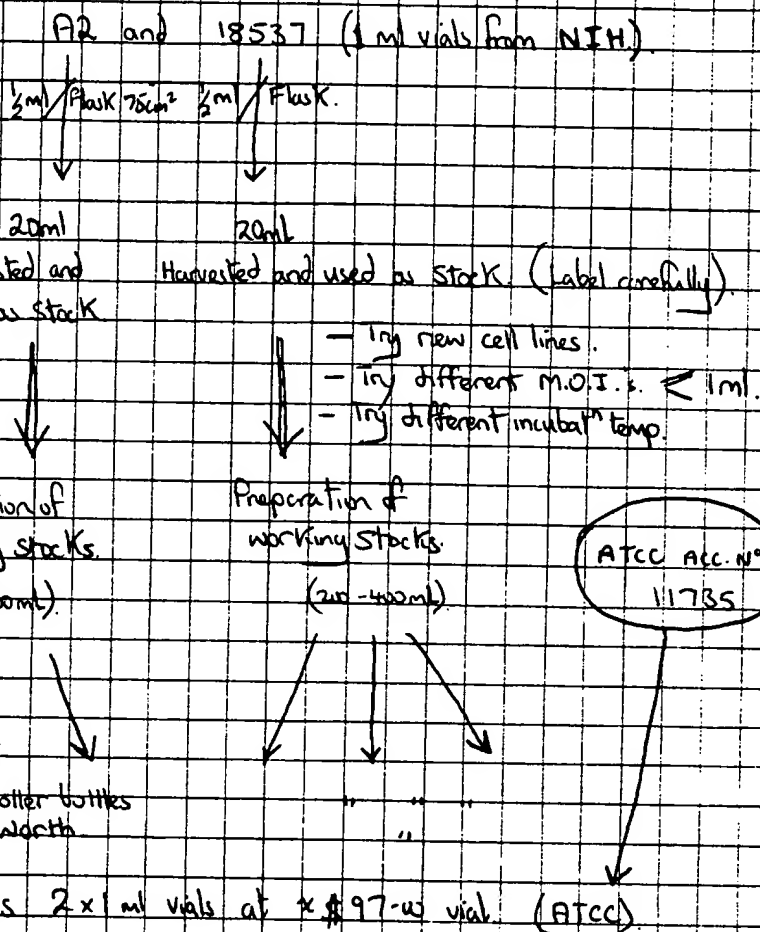 A2 and 18537 (1 ml vials from NIH).
½ml Flask 75cm² ½ml Flask.
20ml 20mL
ted and Harvested and used as Stock. (Label carefully).
as Stock
- Try new cell lines.
- Try different M.O.I.s. < 1ml.
- Try different incubatⁿ temp.
ion of Preparation of
g stocks. working Stocks.
0mL). (200-400mL)
ATCC ACC. Nº
11735
oller bottles " " "
Worth "
s 2x1 ml vials at $97-00 vial. (ATCC)